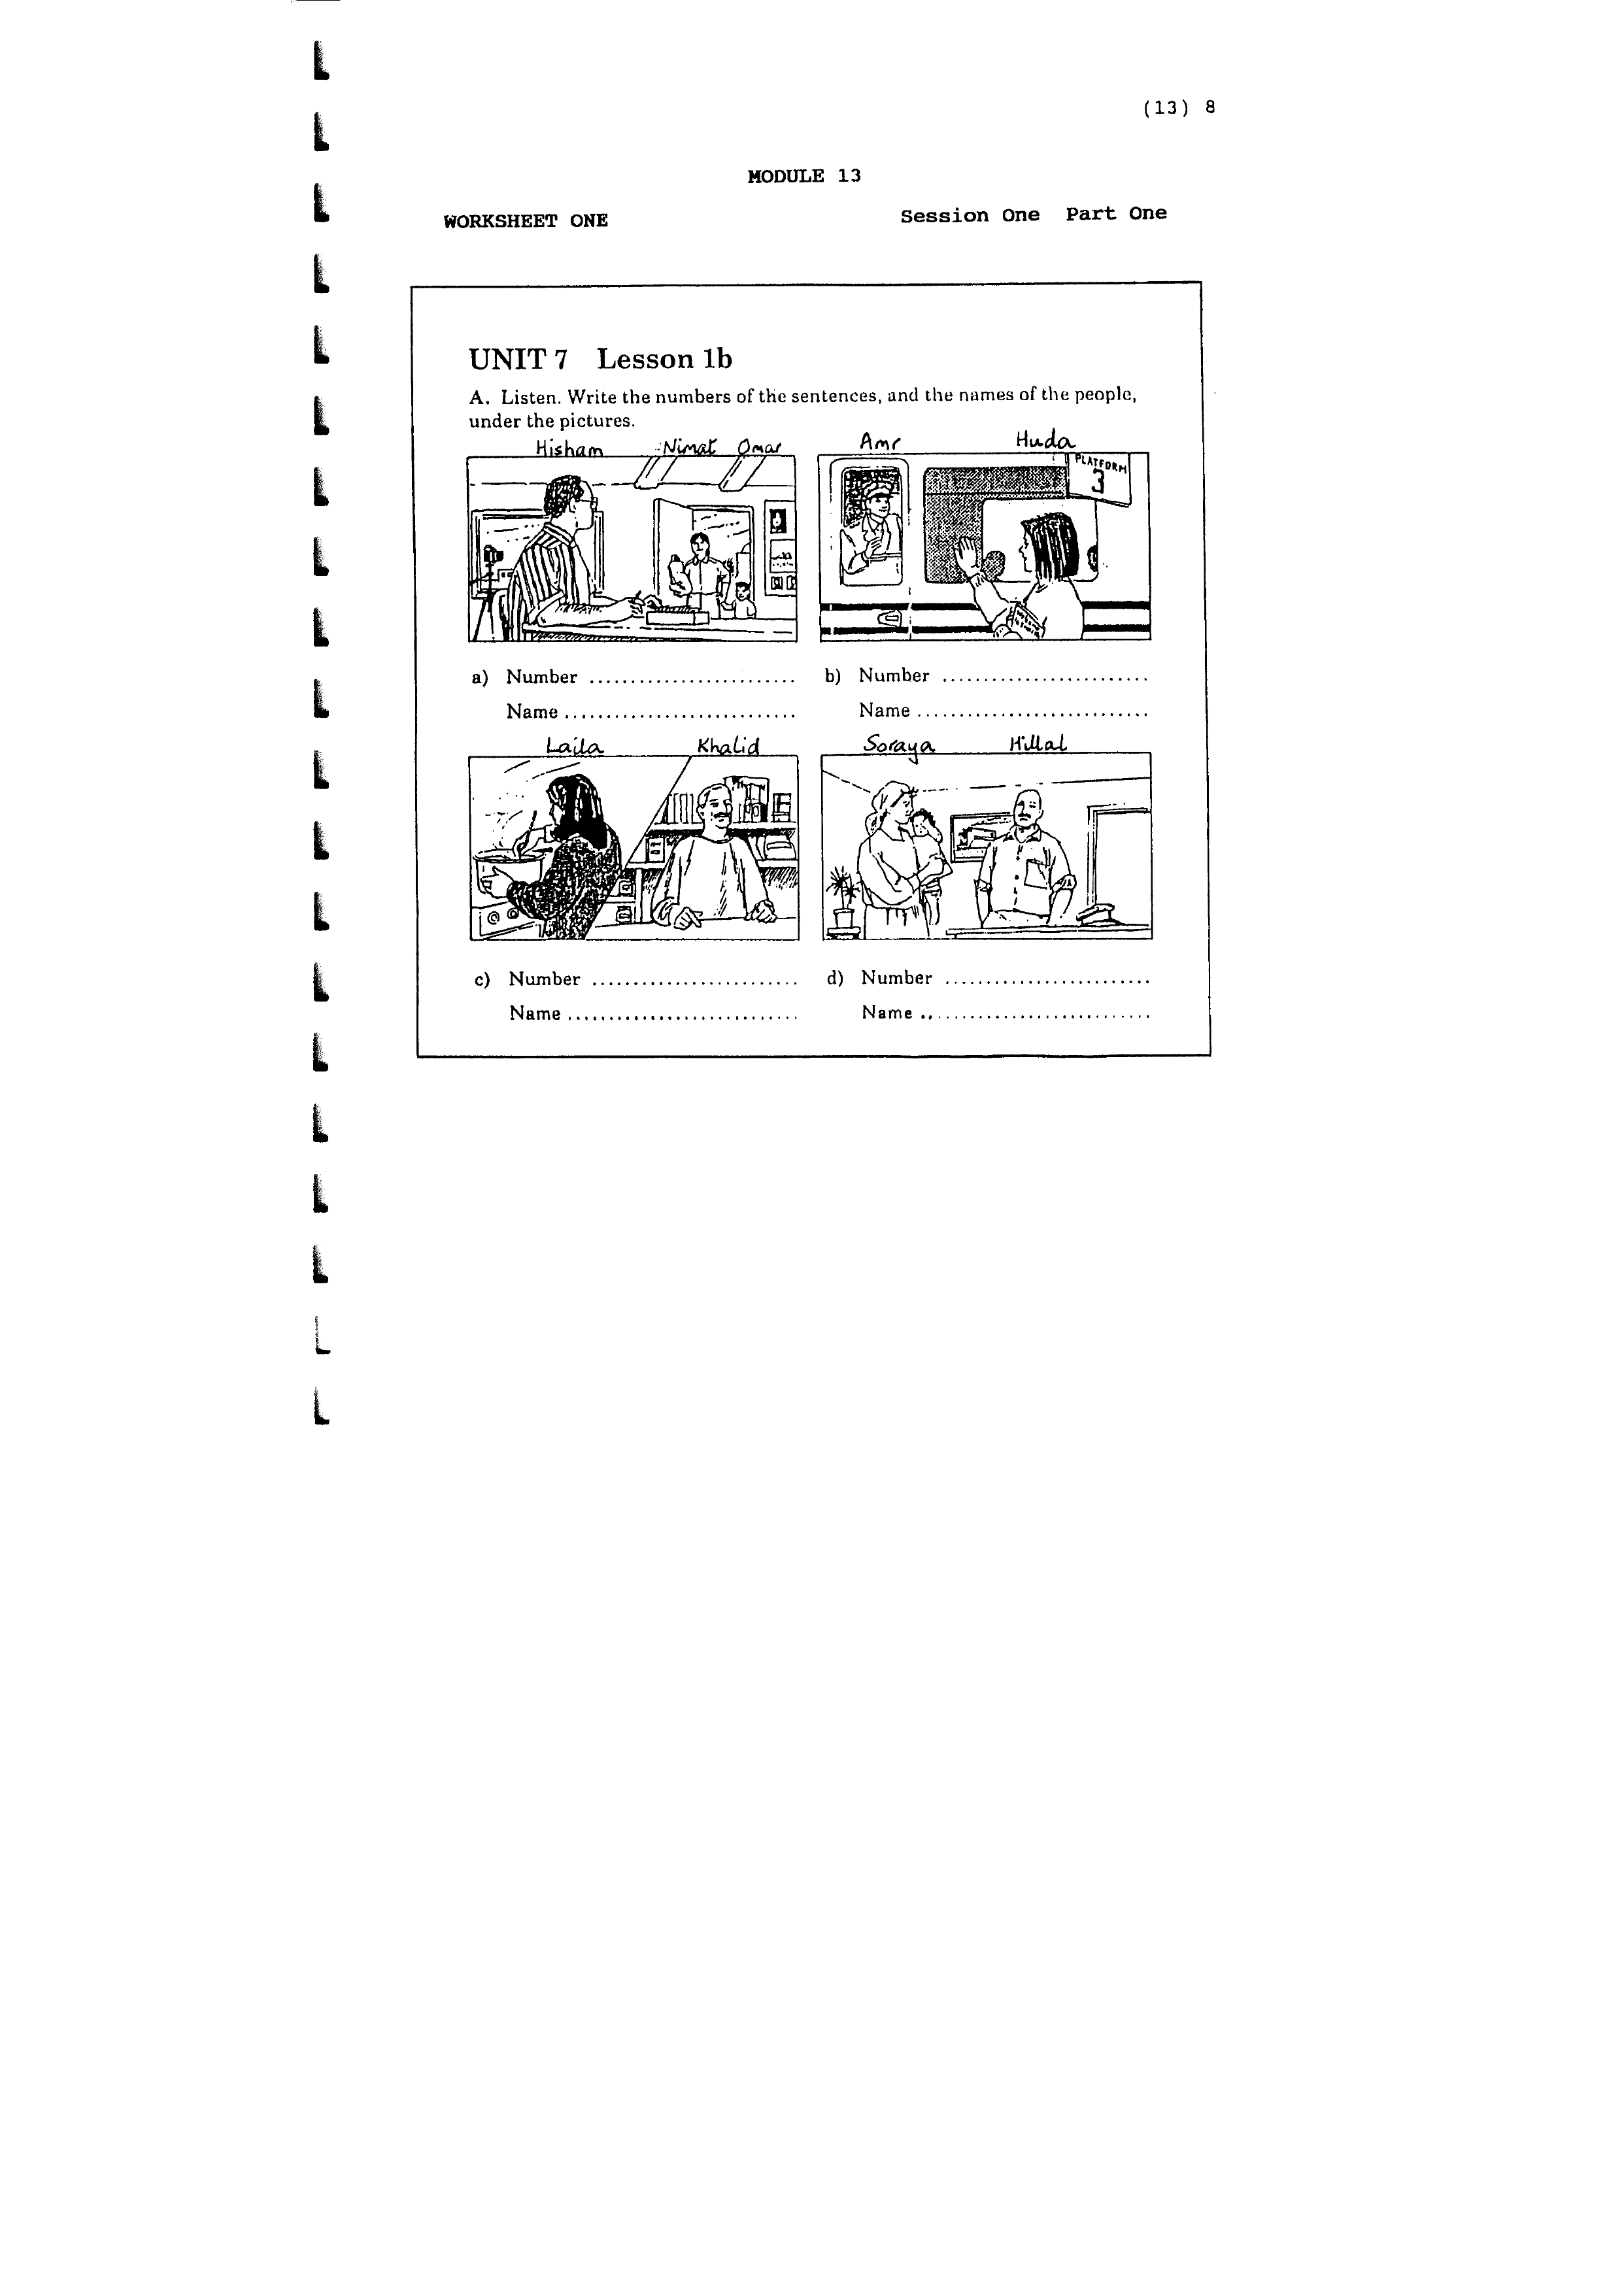 (13) 8
MODULE 13
WORKSHEET ONE
Session One Part One
UNIT 7 Lesson 1b
A. Listen. Write the numbers of the sentences, and the names of the people,
under the pictures.
Hisham Nimat Omar
Amr Huda
PLATFORM
3
a) Number .........................
Name ............................
b) Number .........................
Name ............................
Laila Khalid
Soraya Hillal
c) Number .........................
Name ............................
d) Number .........................
Name ............................